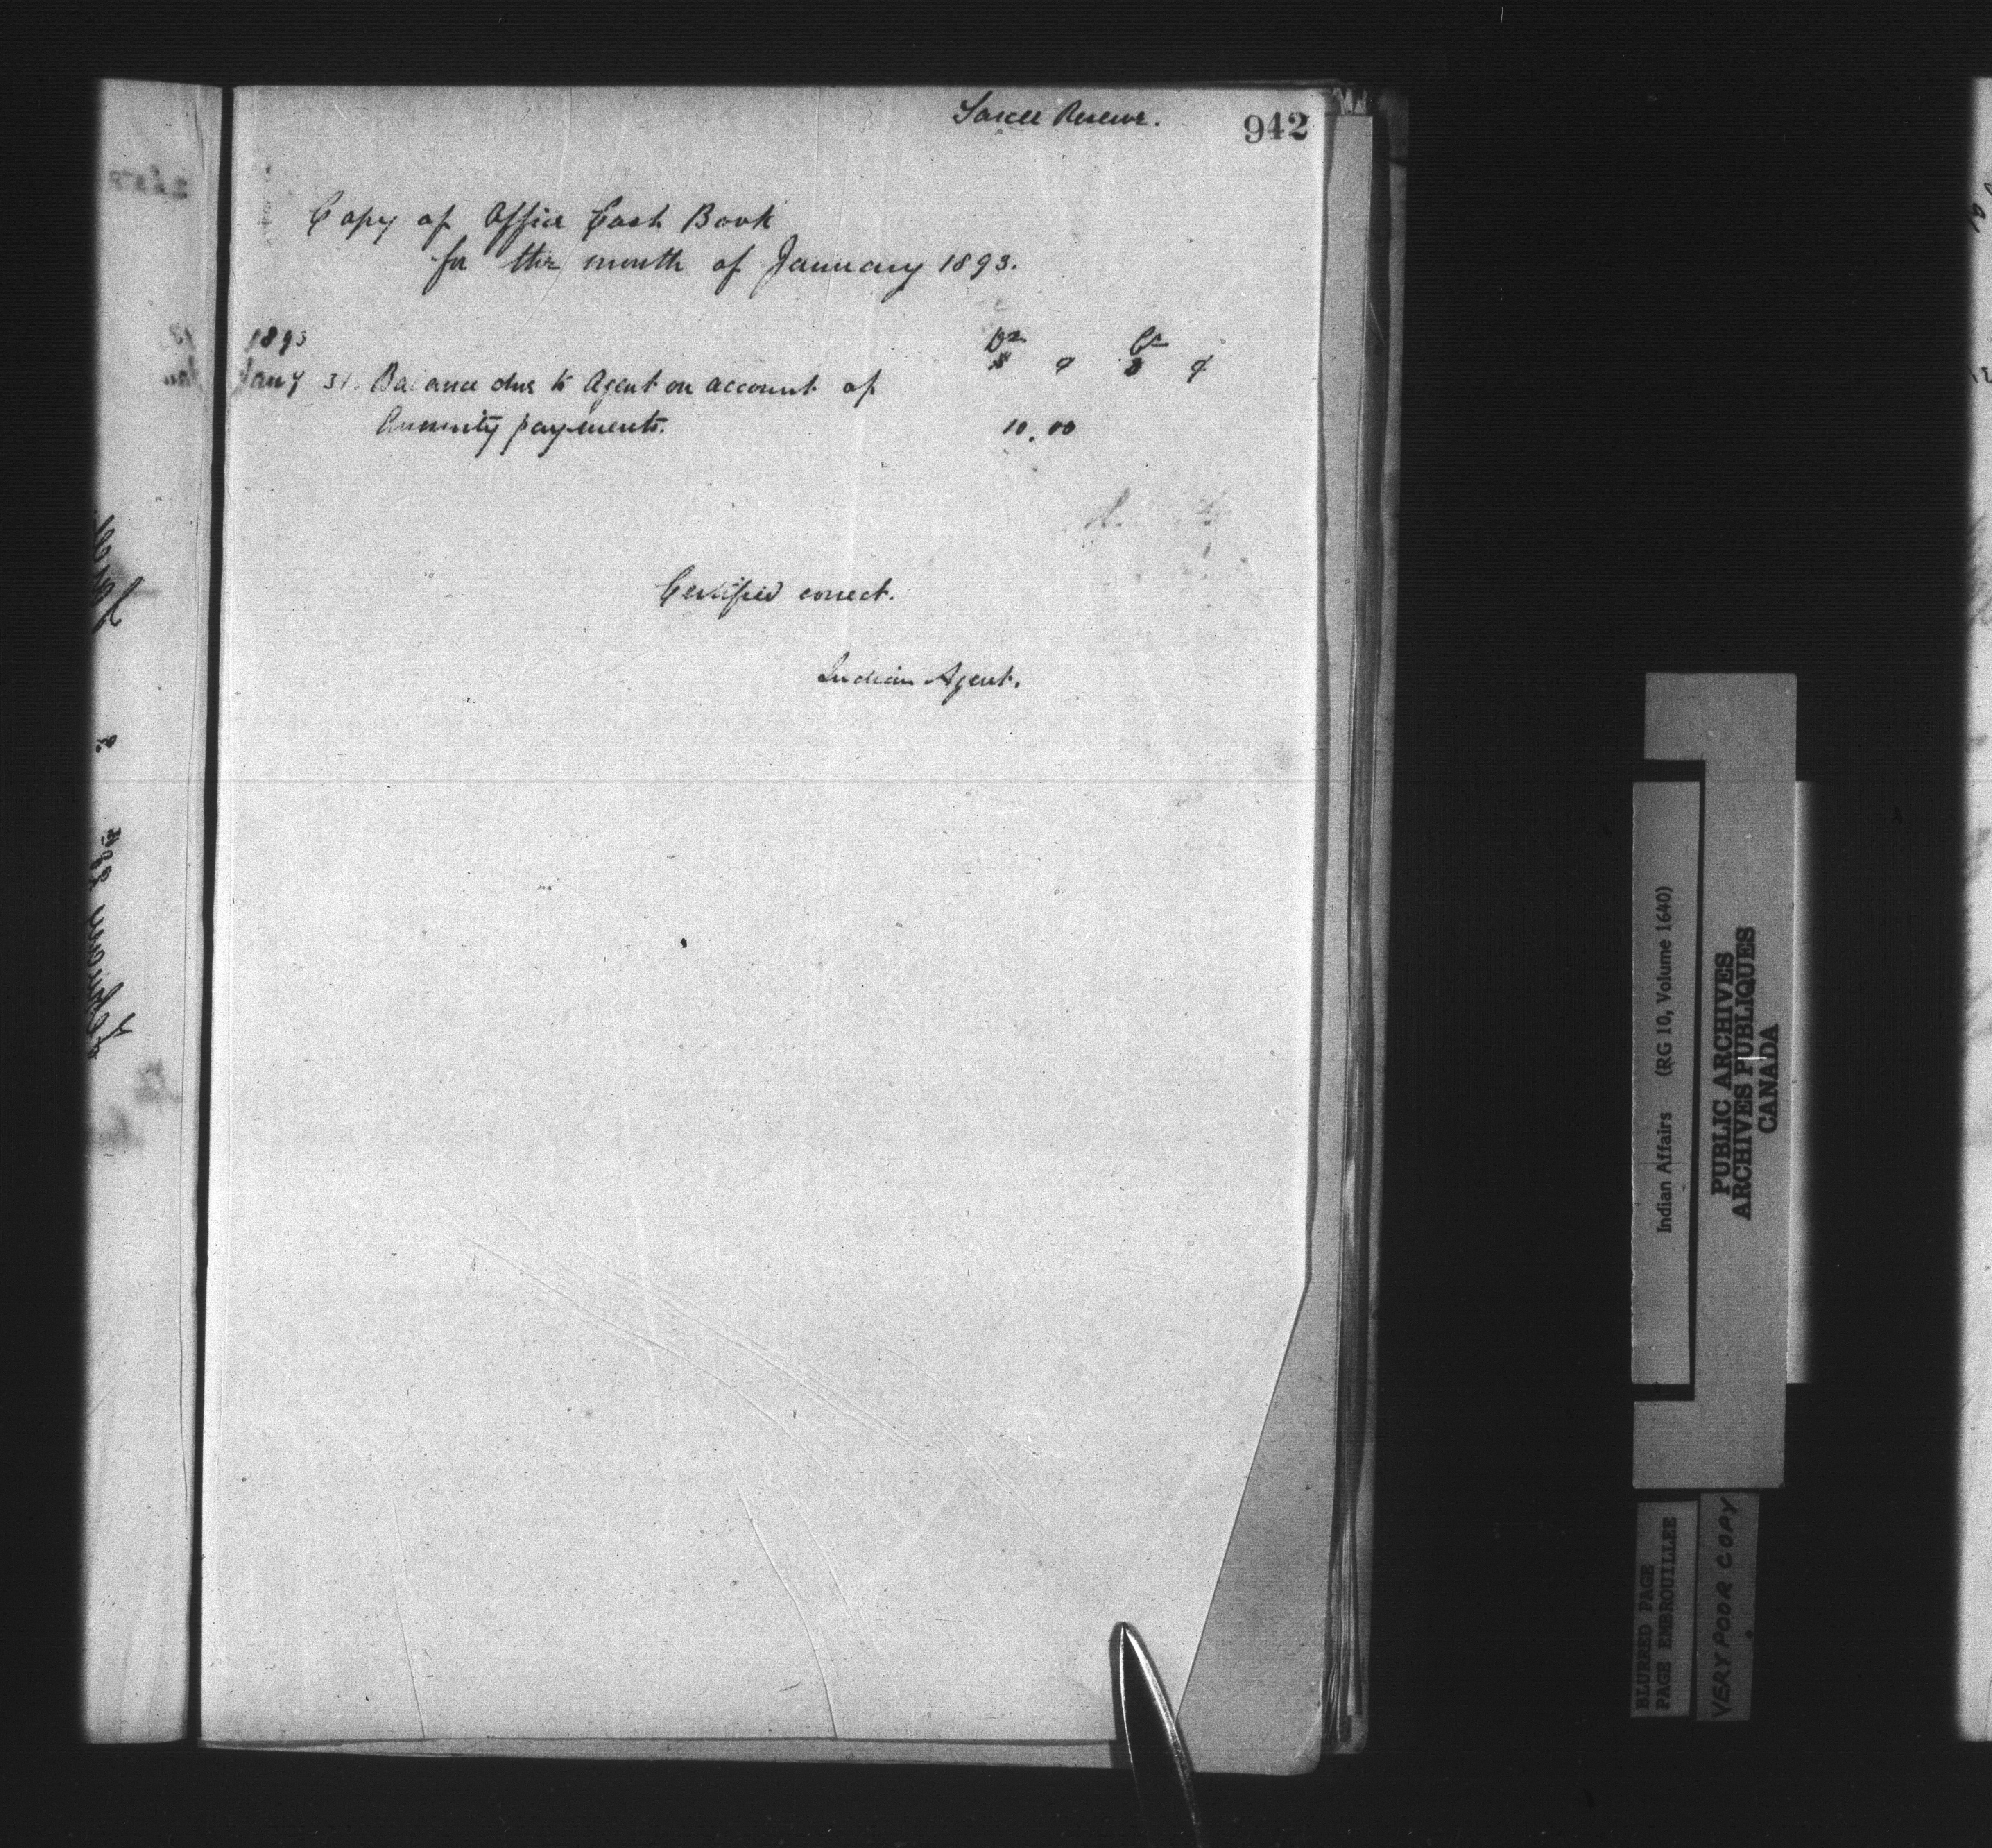 Sarcee Reserve.
942
Copy of Office Cash Book
for the month of January 1893.
1893
Dr Cr
$ ¢ $ ¢
Jany 31. Balance due to Agent on account of
Annuity payments. 10.00
Certified correct.
Indian Agent.
Indian Affairs (RG 10, Volume 1640)
PUBLIC ARCHIVES
ARCHIVES PUBLIQUES
CANADA
BLURRED PAGE
PAGE EMBROUILLEE
VERY POOR COPY